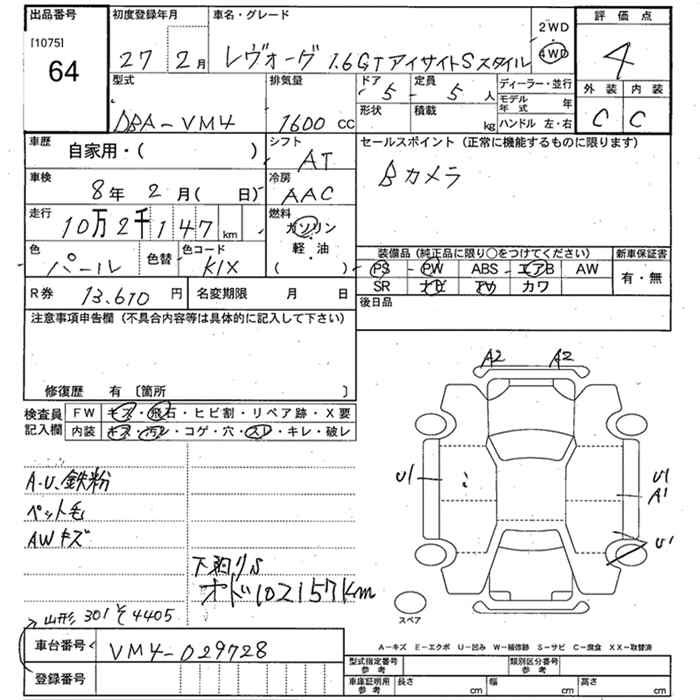 出品番号
[1075]
64
初度登録年月
27 2月
車名・グレード
レヴォーグ 1.6GTアイサイトSスタイル
2WD
4WD
評価点
4
外装 内装
C C
型式
DBA-VM4
排気量
1600 cc
ドア 5
定員 5 人
形状
積載 kg
ディーラー・並行
モデル年式 年
ハンドル 左・右
車歴
自家用・( )
シフト
AT
セールスポイント(正常に機能するものに限ります)
Bカメラ
車検
8年 2月( 日)
冷房
AAC
走行
10万2千147km
燃料
ガソリン
軽・油
( )
色
パール
色替
色コード
K1X
装備品(純正品に限り○をつけてください)
PS PW ABS エアB AW
SR ナビ カワ
新車保証書
有・無
R券 13,610円
名変期限 月 日
後日品
注意事項申告欄(不具合内容等は具体的に記入して下さい)
修復歴 有〔箇所 〕
検査員記入欄
FW キズ・飛石・ヒビ割・リペア跡・X要
内装 キズ・汚レ・コゲ・穴・スレ・キレ・破レ
A2 A2
U1
U1
A1
U1
A.U.鉄粉
ペット毛
AWキズ
下廻りS
オド102157km
山形 301 そ 4405
スペア
A-キズ E-エクボ U-凹み W-補修跡 S-サビ C-腐食 XX-取替済
車台番号 VM4-029728
登録番号
型式指定番号 参考
類別区分番号 参考
車庫証明用 参考
長さ cm
幅 cm
高さ cm